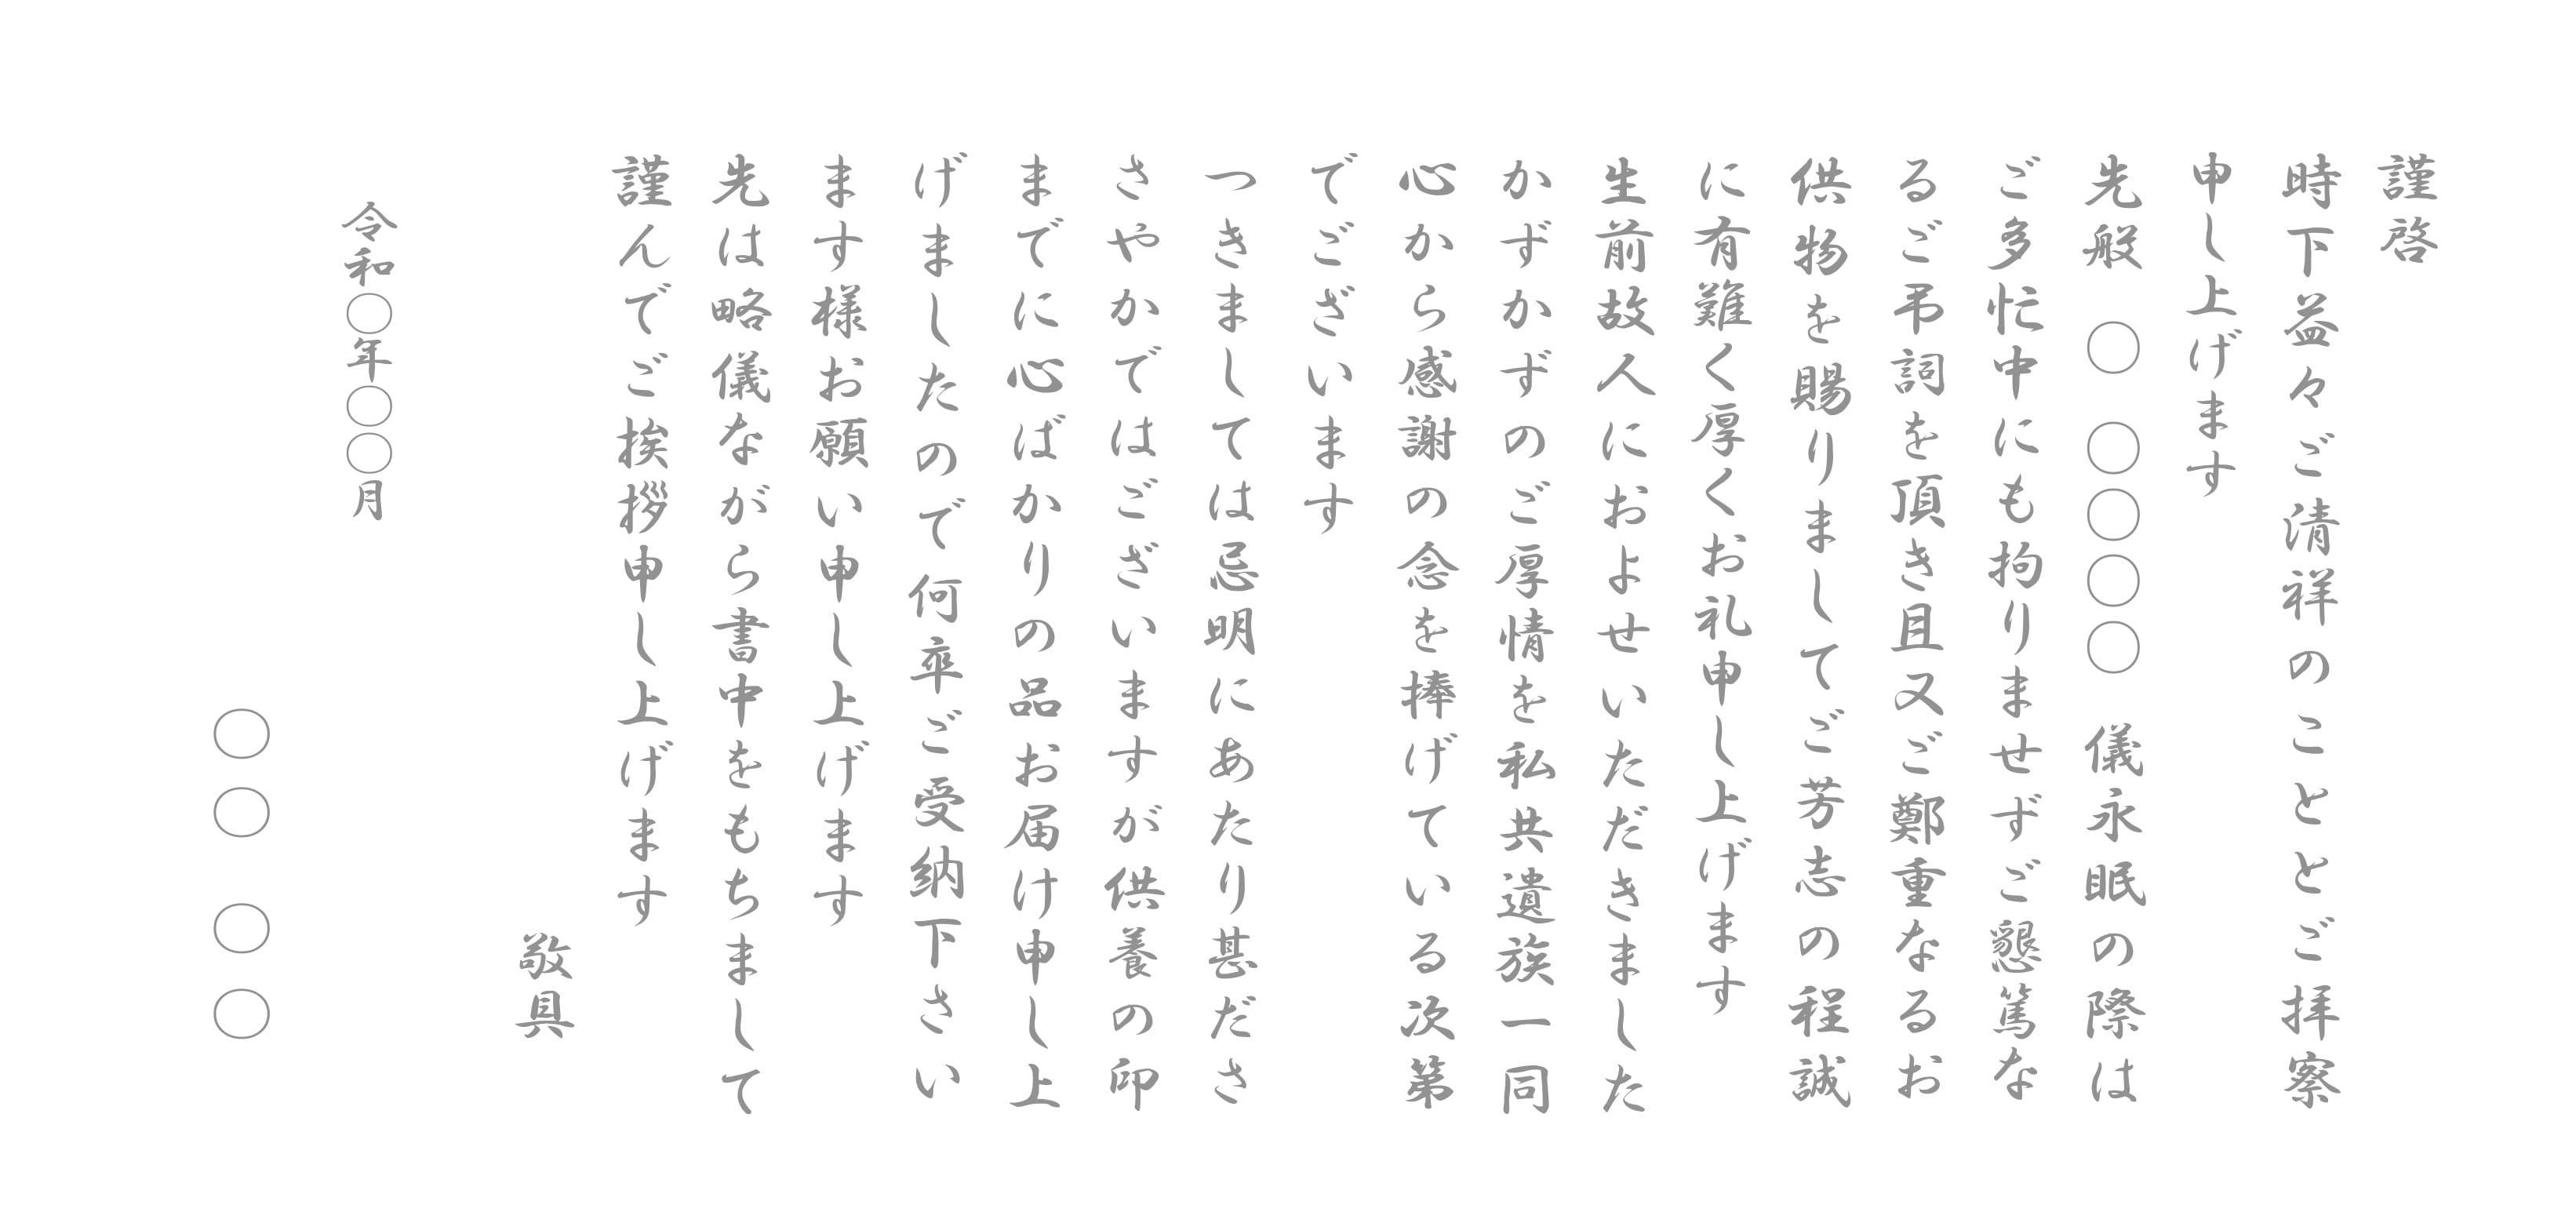 謹啓
時下益々ご清祥のこととご拝察
申し上げます
先般　〇　〇〇〇〇　儀永眠の際は
ご多忙中にも拘りませずご懇篤な
るご弔詞を頂き且又ご鄭重なるお
供物を賜りましてご芳志の程誠
に有難く厚くお礼申し上げます
生前故人におよせいただきました
かずかずのご厚情を私共遺族一同
心から感謝の念を捧げている次第
でございます
つきましては忌明にあたり甚ださ
さやかではございますが供養の印
までに心ばかりの品お届け申し上
げましたので何卒ご受納下さい
ます様お願い申し上げます
先は略儀ながら書中をもちまして
謹んでご挨拶申し上げます
敬具
令和〇年〇〇月
〇〇　〇〇